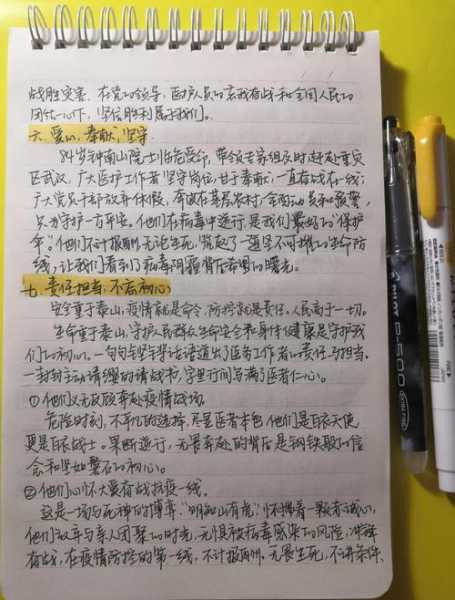 战胜灾害。在党的领导,医护人员的亲我奋战和全国人民的
团结一心下,坚信胜利属于我们。
六、爱心,奉献,坚守
84岁钟南山院士临危受命,带领专家组及时赶赴重灾
区武汉,广大医护工作者坚守岗位,甘于奉献,一直奋战在一线;
广大党员干部放弃休假,奔波在基层农村,全面动员和预警,
只为守护一方平安。他们在病毒中逆行,是我们最好的"保护
伞"。他们不计报酬,无论生死,筑起了一道牢不可摧的生命防
线,让我们看到了病毒阴霾背后希望的曙光。
七、责任担当,不忘初心
安全重于泰山,疫情就是命令,防控就是责任。人民高于一切。
生命重于泰山,守护人民群众生命安全和身体健康是守护我
们的初心。一句句铿锵话语道出了医务工作者的责任与担当。
一封封主动请缨的请战书,字里行间写满了医者仁心。
①他们义无反顾奔赴疫情战场
危险时刻,不平凡的选择,尽显医者本色。他们是白衣天使
更是白衣战士。果断逆行,无畏奔赴的背后是钢铁般的信
念和坚如磐石的初心。
②他们心怀大爱奋战抗疫一线。
这是一场与死神的博弈,"明知山有虎",怀揣着一颗赤诚心,
他们放弃与亲人团聚的时光,无惧被病毒感染的风险,
奋战,在疫情防控的第一线,不计报酬、无畏生死,不讲条件、
PILOT
P-500